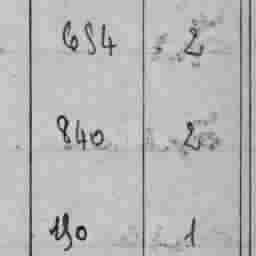 654 2
840 2
150 1